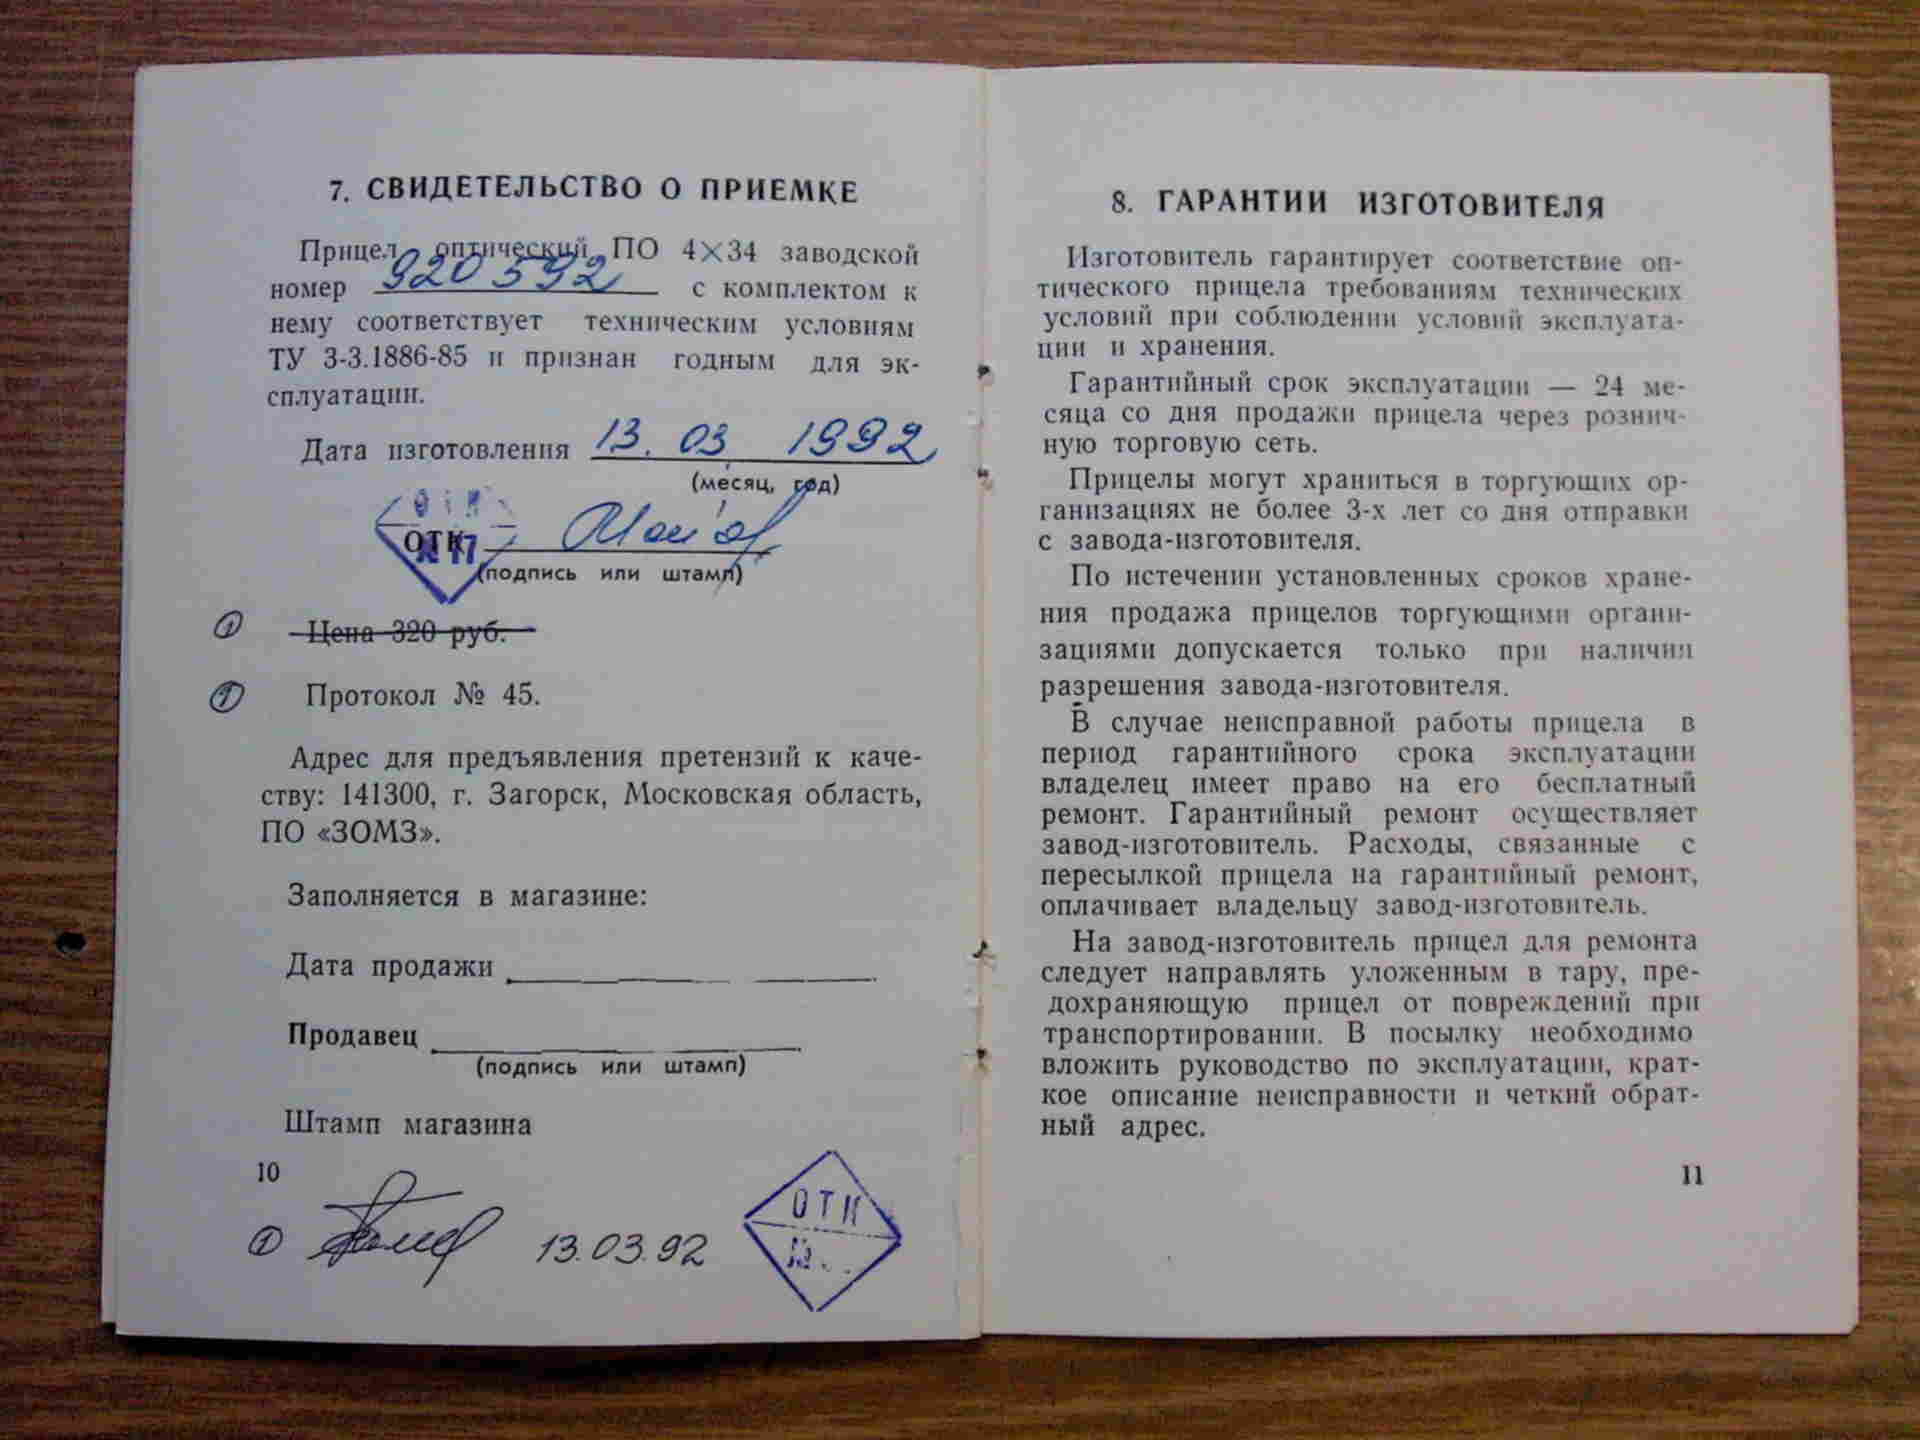 7. СВИДЕТЕЛЬСТВО О ПРИЕМКЕ
Прицел оптический ПО 4×34 заводской
номер 920592 с комплектом к
нему соответствует техническим условиям
ТУ 3-3.1886-85 и признан годным для эк-
сплуатации.
Дата изготовления 13.03 1992
(месяц, год)
ОТК
ОТК
№ 17
(подпись или штамп)
① Цена 320 руб.
① Протокол № 45.
Адрес для предъявления претензий к каче-
ству: 141300, г. Загорск, Московская область,
ПО «ЗОМЗ».
Заполняется в магазине:
Дата продажи
Продавец
(подпись или штамп)
Штамп магазина
10
① 13.03.92
ОТК
№
8. ГАРАНТИИ ИЗГОТОВИТЕЛЯ
Изготовитель гарантирует соответствие оп-
тического прицела требованиям технических
условий при соблюдении условий эксплуата-
ции и хранения.
Гарантийный срок эксплуатации — 24 ме-
сяца со дня продажи прицела через рознич-
ную торговую сеть.
Прицелы могут храниться в торгующих ор-
ганизациях не более 3-х лет со дня отправки
с завода-изготовителя.
По истечении установленных сроков хране-
ния продажа прицелов торгующими органи-
зациями допускается только при наличии
разрешения завода-изготовителя.
В случае неисправной работы прицела в
период гарантийного срока эксплуатации
владелец имеет право на его бесплатный
ремонт. Гарантийный ремонт осуществляет
завод-изготовитель. Расходы, связанные с
пересылкой прицела на гарантийный ремонт,
оплачивает владельцу завод-изготовитель.
На завод-изготовитель прицел для ремонта
следует направлять уложенным в тару, пре-
дохраняющую прицел от повреждений при
транспортировании. В посылку необходимо
вложить руководство по эксплуатации, крат-
кое описание неисправности и четкий обрат-
ный адрес.
11